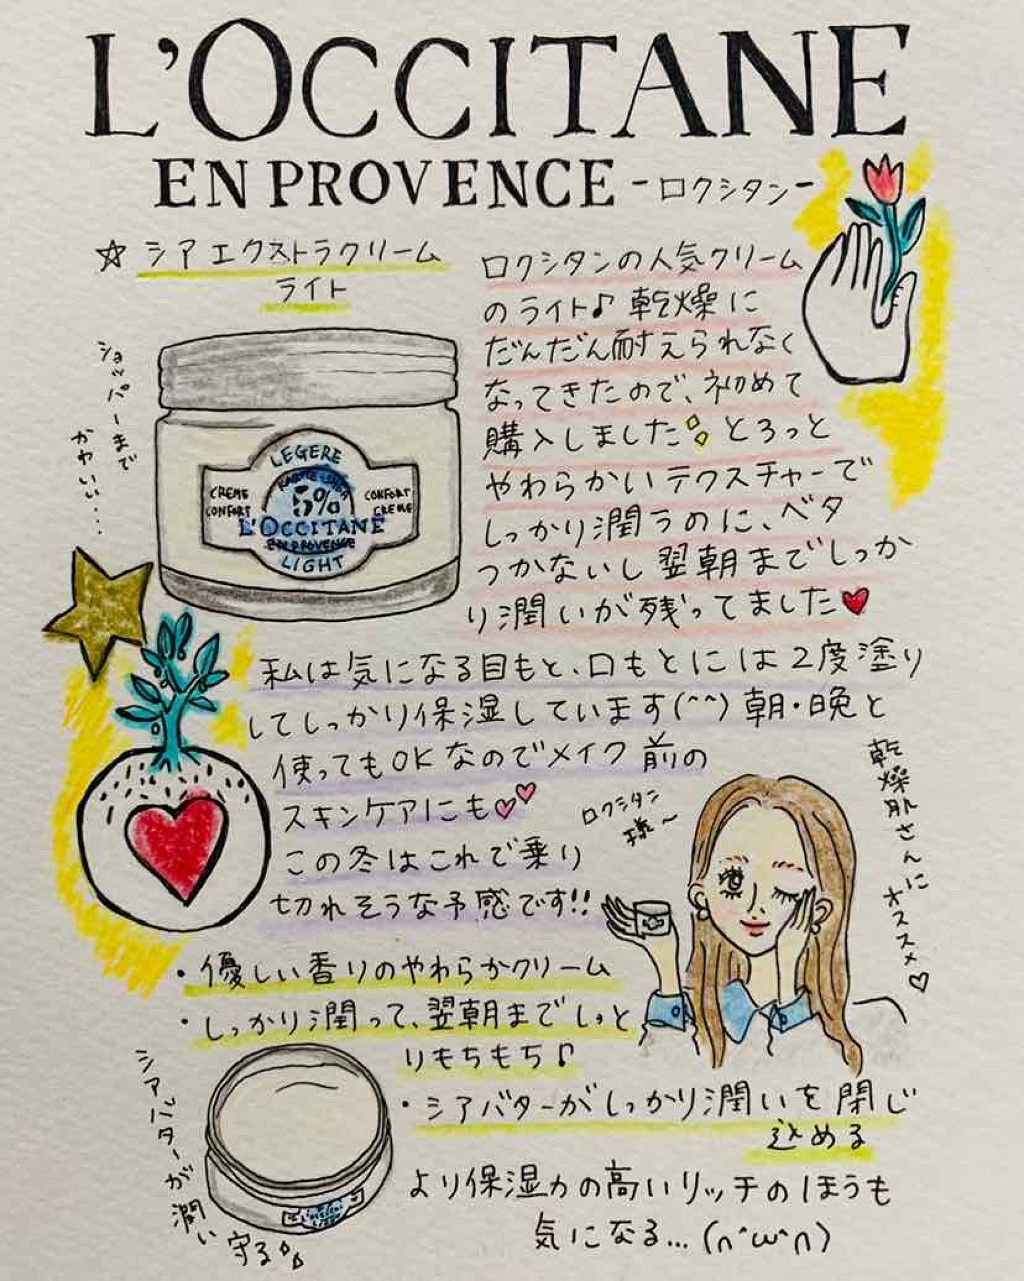 L'OCCITANE
EN PROVENCE -ロクシタン-
☆ シアエクストラクリーム
ライト
ショッパーまで
かわいい....
LEGERE
5%
CREME
CONFORT
CONFORT
CREME
L'OCCITANE
EN PROVENCE
LIGHT
ロクシタンの人気クリーム
のライト♪ 乾燥に
だんだん耐えられなく
なってきたので、初めて
購入しました とろっと
やわらかいテクスチャーで
しっかり潤うのに、ベタ
つかないし翌朝までしっか
り潤いが残ってました♥
私は気になる目もと、口もとには2度塗り
してしっかり保湿しています(^^) 朝・晩と
使ってもOKなのでメイク前の
スキンケアにも♡♡
この冬はこれで乗り
切れそうな予感です!!
ロクシタン
様〜
乾燥肌さんに
オススメ♡
・優しい香りのやわらかクリーム
・しっかり潤って、翌朝までしっと
りもちもち♪
・シアバターがしっかり潤いを閉じ
込める
シアバターが
潤い
守る
より保湿力の高いリッチのほうも
気になる...(∩^ω^∩)